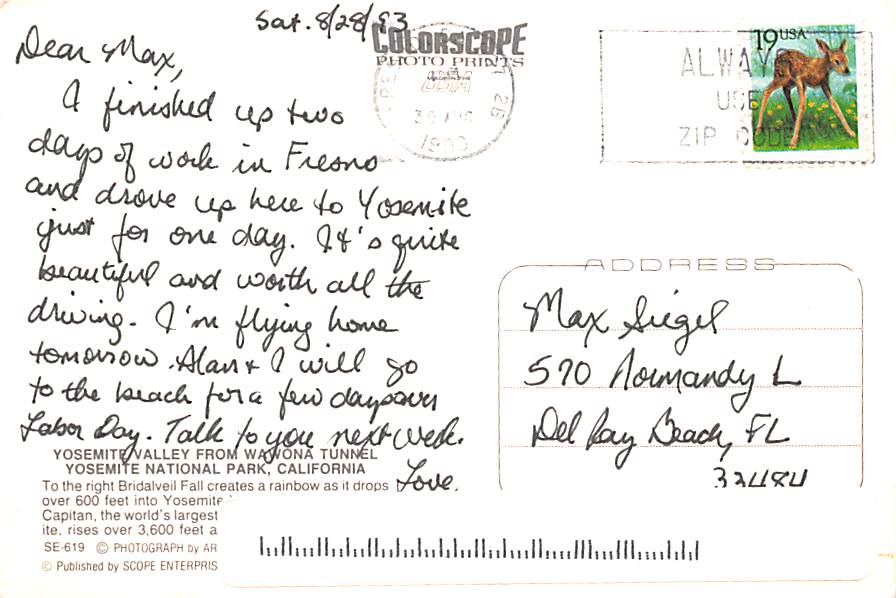 Sat. 8/28/93
Dear Max,
I finished up two
days of work in Fresno
and drove up here to Yosemite
just for one day. It's quite
beautiful and worth all the
driving. I'm flying home
tomorrow. Alan & I will go
to the beach for a few days over
Labor Day. Talk to you next week.
Love,
COLORSCOPE
PHOTO PRINTS
USA
30 AUG
1993
ALWAYS
USE
ZIP CODE
19 USA
ADDRESS
Max Siegel
570 Normandy L
Del Ray Beach, FL
33484
YOSEMITE VALLEY FROM WAWONA TUNNEL
YOSEMITE NATIONAL PARK, CALIFORNIA
To the right Bridalveil Fall creates a rainbow as it drops
over 600 feet into Yosemite
Capitan, the world's largest
ite, rises over 3,600 feet a
SE-619 © PHOTOGRAPH by AR
© Published by SCOPE ENTERPRIS